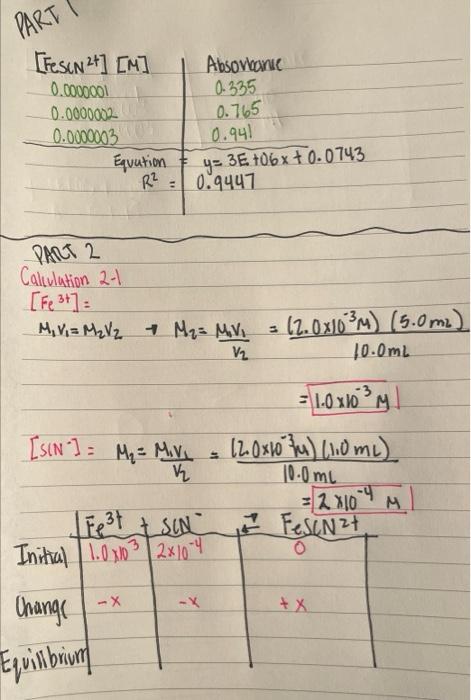 PART 1
[FeSCN²⁺] [M] Absorbance
0.0000001 0.335
0.0000002 0.765
0.0000003 0.941
Equation = y= 3E+06x + 0.0743
R² = 0.9447
PART 2
Calculation 2-1
[Fe³⁺] =
M₁V₁ = M₂V₂ → M₂ = M₁V₁/V₂ = (2.0x10⁻³M) (5.0mL)/10.0mL
= 1.0x10⁻³ M
[SCN⁻] = M₂ = M₁V₁/V₂ = (2.0x10⁻³M) (1.0 mL)/10.0mL
= 2x10⁻⁴ M
Fe³⁺ + SCN⁻ ⇄ FeSCN²⁺
Initial 1.0x10³ 2x10⁻⁴ 0
Change -x -x +x
Equilibrium